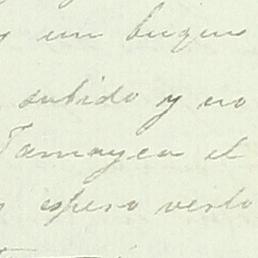 y un buque
subido y no
Tamayca el
espero verlo